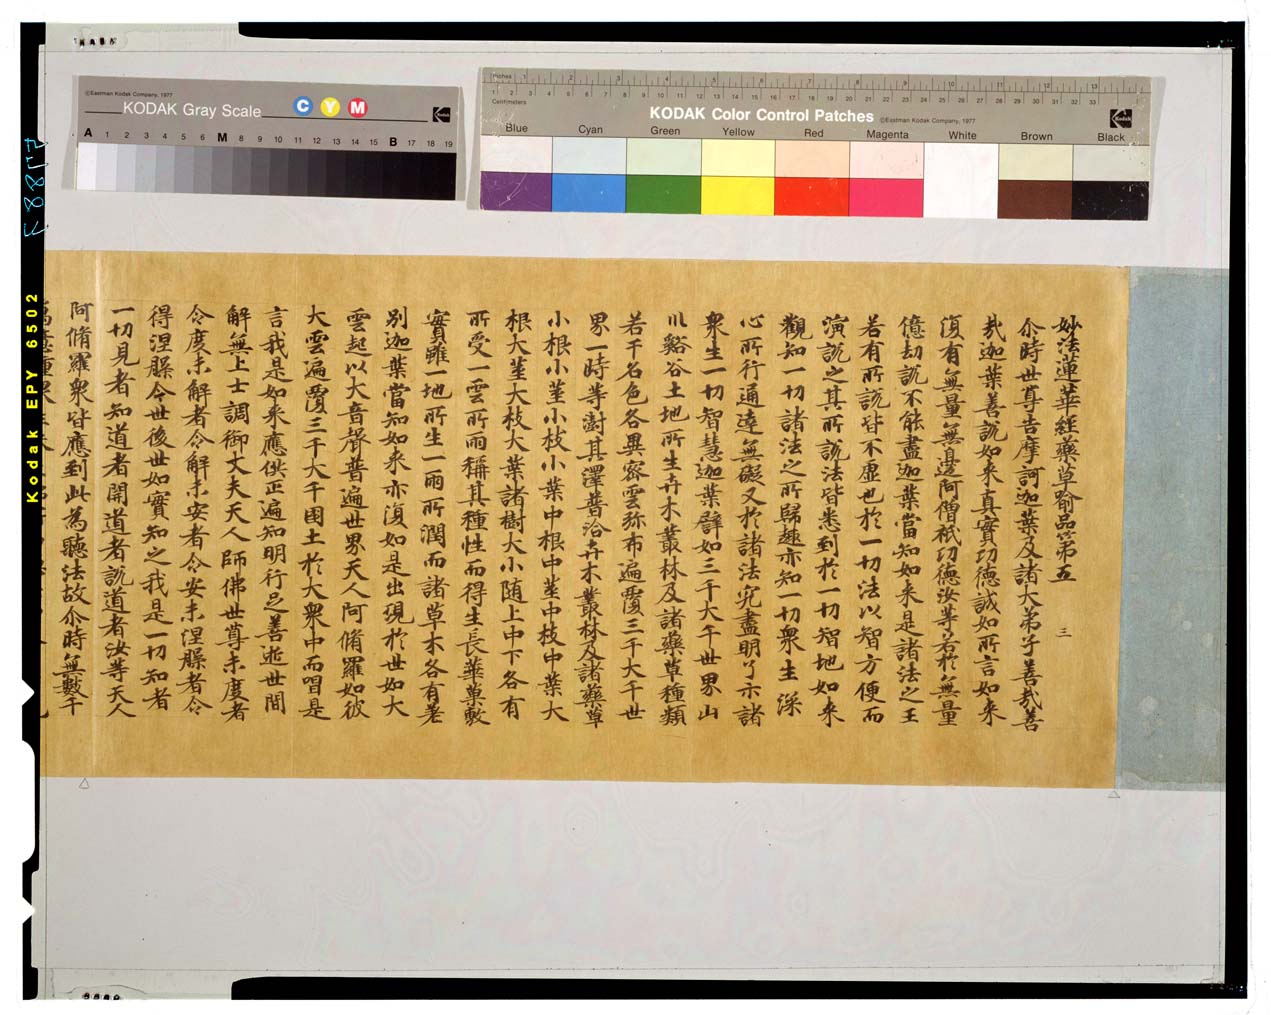 ©Eastman Kodak Company, 1977
KODAK Gray Scale
C Y M
Kodak
A 1 2 3 4 5 6 M 8 9 10 11 12 13 14 15 B 17 18 19
Inches 1 2 3 4 5 6 7 8 9 10 11 12 13
Centimetres 1 2 3 4 5 6 7 8 9 10 11 12 13 14 15 16 17 18 19 20 21 22 23 24 25 26 27 28 29 30 31 32 33
KODAK Color Control Patches ©Eastman Kodak Company, 1977
Kodak
Blue Cyan Green Yellow Red Magenta White Brown Black
Kodak EPY 6502
妙法蓮華經藥草喻品第五 三
尒時世尊告摩訶迦葉及諸大弟子善哉善
哉迦葉善說如来真實功德誠如所言如来
復有無量無邊阿僧祇功德汝等若於無量
億劫說不能盡迦葉當知如来是諸法之王
若有所說皆不虛也於一切法以智方便而
演說之其所說法皆悉到於一切智地如来
觀知一切諸法之所歸趣亦知一切衆生深
心所行通達無礙又於諸法究盡明了示諸
衆生一切智慧迦葉譬如三千大千世界山
川谿谷土地所生卉木叢林及諸藥草種類
若干名色各異密雲弥布遍覆三千大千世
界一時等澍其澤普洽卉木叢林及諸藥草
小根小莖小枝小葉中根中莖中枝中葉大
根大莖大枝大葉諸樹大小随上中下各有
所受一雲所雨稱其種性而得生長華菓敷
實雖一地所生一雨所潤而諸草木各有差
別迦葉當知如来亦復如是出現於世如大
雲起以大音聲普遍世界天人阿脩羅如彼
大雲遍覆三千大千國土於大衆中而唱是
言我是如来應供正遍知明行足善逝世間
解無上士調御丈夫天人師佛世尊未度者
令度未解者令解未安者令安未涅槃者令
得涅槃今世後世如實知之我是一切知者
一切見者知道者開道者說道者汝等天人
阿脩羅衆皆應到此為聽法故尒時無數千